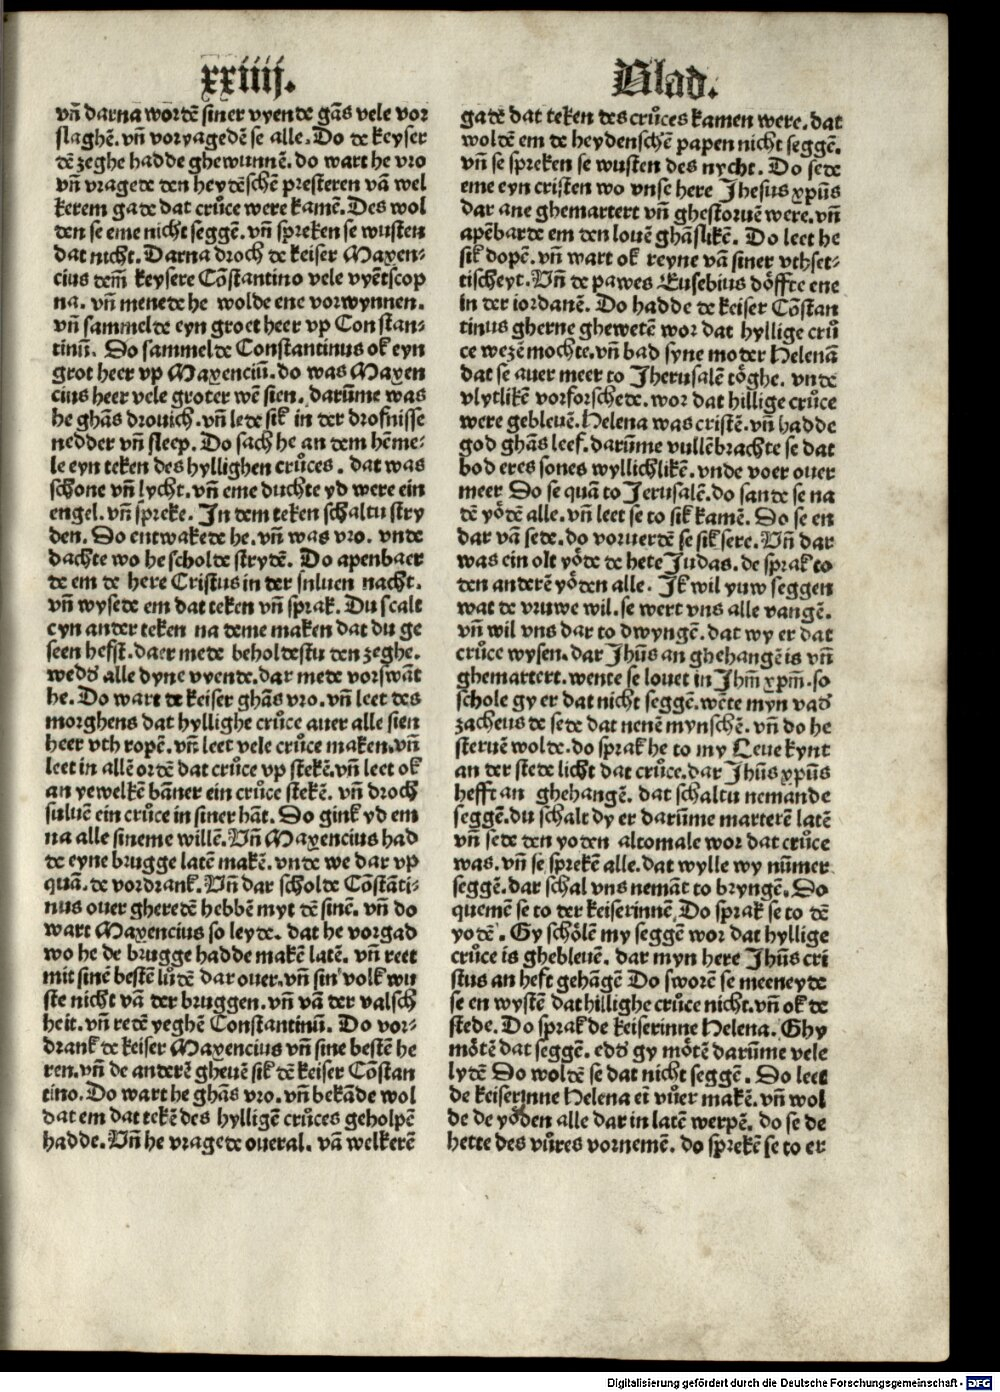 xxiiij.
vn̄ darna wordē siner vyende gās vele vor
slaghē. vn̄ voryagedē se alle. Do de keyser
dē zeghe hadde ghewunnē. do wart he vro
vn̄ vragede den heydēschē presteren vā wel
kerem gade dat crůce were kamē. Des wol
den se eme nicht seggē. vn̄ spreken se wusten
dat nicht. Darna droch de keiser Maxen-
cius dem̄ keysere Cōstantino vele vyētscop
na. vn̄ menede he wolde ene vorwynnen.
vn̄ sammelde eyn groet heer vp Constan-
tinū. Do sammelde Constantinus ok eyn
grot heer vp Maxenciū. do was Maxen
cius heer vele groter wē sien. darūme was
he ghās drouich. vn̄ lede sik in der drofnisse
nedder vn̄ sleep. Do sach he an dem hēme-
le eyn teken des hyllighen crůces. dat was
schone vn̄ lycht. vn̄ eme duchte yd were ein
engel. vn̄ spreke. In dem teken schaltu stry
den. Do entwakede he. vn̄ was vro. vnde
dachte wo he scholde strydē. Do apenbaer
de em de here Cristus in der suluen nacht.
vn̄ wysede em dat teken vn̄ sprak. Du scalt
eyn ander teken na deme maken dat du ge
seen hefst. daer mede beholdestu den zeghe.
wedd̕ alle dyne vyende. dar mede vorswāt
he. Do wart de keiser ghās vro. vn̄ leet des
morghens dat hyllighe crůce auer alle sien
heer vth ropē. vn̄ leet vele crůce maken. vn̄
leet in allē ordē dat crůce vp stekē. vn̄ leet ok
an yewelkē bāner ein crůce stekē. vn̄ droch
suluē ein crůce in siner hāt. Do gink yd em
na alle sineme willē. Vn̄ Maxencius had
de eyne brugge latē makē. vnde we dar vp
quā. de vordrank. Vn̄ dar scholde Cōstāti-
nus ouer gheredē hebbē myt dē sinē. vn̄ do
wart Maxencius so leyde. dat he vorgad
wo he de brugge hadde makē latē. vn̄ reet
mit sinē bestē lůdē dar ouer. vn̄ sin volk wu
ste nicht vā der bruggen. vn̄ vā der valsch
heit. vn̄ redē yeghē Constantinū. Do vor-
drank de keiser Maxencius vn̄ sine bestē he
ren. vn̄ de anderē gheuē sik dē keiser Cōstan
tino. Do wart he ghās vro. vn̄ bekāde wol
dat em dat tekē des hylligē crůces geholpē
hadde. Vn̄ he vragede oueral. vā welkerē
Blad.
gade dat teken des crůces kamen were. dat
woldē em de heydenschē papen nicht seggē.
vn̄ se spreken se wusten des nycht. Do sede
eme eyn cristen wo vnse here Jhesus xp̄us
dar ane ghemartert vn̄ ghestoruē were. vn̄
apēbarde em den louē ghāslikē. Do leet he
sik dopē. vn̄ wart ok reyne vā siner vthset-
tischeyt. Vn̄ de pawes Eusebius döffte ene
in der iordanē. Do hadde de keiser Cōstan
tinus gherne ghewetē wor dat hyllige crů
ce wezē mochte. vn̄ bad syne moder Helenā
dat se auer meer to Jherusalē töghe. vnde
vlytlikē vorforschede. wor dat hillige crůce
were gebleuē. Helena was cristē. vn̄ hadde
god ghās leef. darūme vullēbrachte se dat
bod eres sones wyllichlikē. vnde voer ouer
meer Do se quā to Jerusalē. do sande se na
dē yödē alle. vn̄ leet se to sik kamē. Do se en
dar vā sede. do voruerdē se sik sere. Vn̄ dar
was ein olt yöde de hete Judas. de sprak to
den anderē yöden alle. Ik wil yuw seggen
wat de vruwe wil. se wert vns alle vangē.
vn̄ wil vns dar to dwyngē. dat wy er dat
crůce wysen. dar Jhūs an ghehangē is vn̄
ghemartert. wente se louet in Jhm̄ xp̄m. so
schole gy er dat nicht seggē. wēte myn vad̕
zacheus de sede dat nenē mynschē. vn̄ do he
steruē wolde. do sprak he to my Leue kynt
an der stede licht dat crůce. dar Jhūs xp̄us
hefft an ghehangē. dat schaltu nemande
seggē. du schalt dy er darūme marterē latē
vn̄ sede den yoden altomale wor dat crůce
was. vn̄ se sprekē alle. dat wylle wy nūmer
seggē. dar schal vns nemāt to bryngē. Do
quemē se to der keiserinnē Do sprak se to dē
yodē. Gy schölē my seggē wor dat hyllige
crůce is ghebleuē. dar myn here Jhūs cri
stus an heft gehāgē Do sworē se meeneyde
se en wystē dat hillighe crůce nicht. vn̄ ok de
stede. Do sprak de keiserinne Helena. Ghy
mötē dat seggē. edd̕ gy mötē darūme vele
lydē Do woldē se dat nicht seggē. Do leet
de keiserinne Helena ei vůer makē. vn̄ wol
de de yöden alle dar in latē werpē. do se de
hette des vůres vornemē. do sprekē se to er
Digitalisierung gefördert durch die Deutsche Forschungsgemeinschaft - DFG